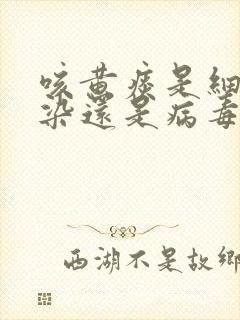 咳黄痰是細
染還是病毒
西湖不是故鄉